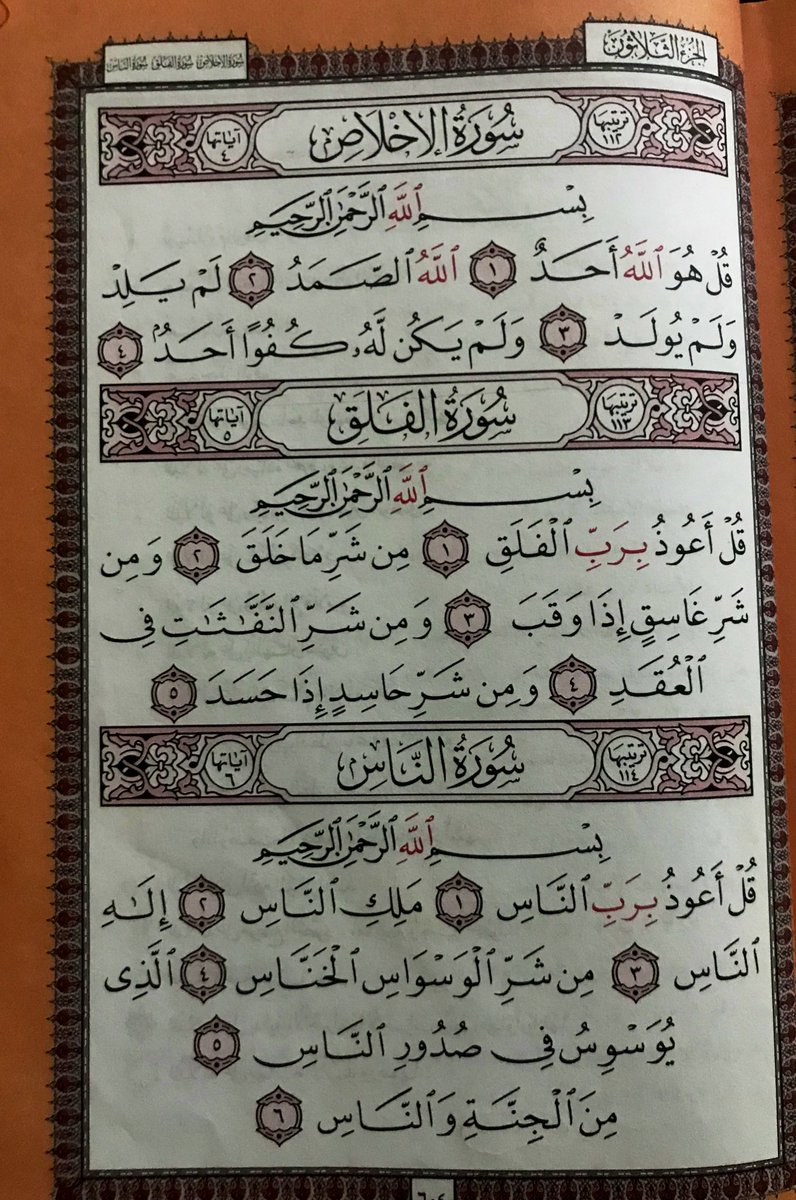 الجزء الثلاثون
سورة الإخلاص سورة الفلق سورة الناس
ترتيبها ١١٢ سُورَةُ الإِخْلَاصِ آياتها ٤
بِسْمِ ٱللَّهِ ٱلرَّحْمَٰنِ ٱلرَّحِيمِ
قُلْ هُوَ ٱللَّهُ أَحَدٌ ١ ٱللَّهُ ٱلصَّمَدُ ٢ لَمْ يَلِدْ
وَلَمْ يُولَدْ ٣ وَلَمْ يَكُن لَّهُۥ كُفُوًا أَحَدٌۢ ٤
ترتيبها ١١٣ سُورَةُ الفَلَقِ آياتها ٥
بِسْمِ ٱللَّهِ ٱلرَّحْمَٰنِ ٱلرَّحِيمِ
قُلْ أَعُوذُ بِرَبِّ ٱلْفَلَقِ ١ مِن شَرِّ مَا خَلَقَ ٢ وَمِن
شَرِّ غَاسِقٍ إِذَا وَقَبَ ٣ وَمِن شَرِّ ٱلنَّفَّٰثَٰتِ فِى
ٱلْعُقَدِ ٤ وَمِن شَرِّ حَاسِدٍ إِذَا حَسَدَ ٥
ترتيبها ١١٤ سُورَةُ النَّاسِ آياتها ٦
بِسْمِ ٱللَّهِ ٱلرَّحْمَٰنِ ٱلرَّحِيمِ
قُلْ أَعُوذُ بِرَبِّ ٱلنَّاسِ ١ مَلِكِ ٱلنَّاسِ ٢ إِلَٰهِ
ٱلنَّاسِ ٣ مِن شَرِّ ٱلْوَسْوَاسِ ٱلْخَنَّاسِ ٤ ٱلَّذِى
يُوَسْوِسُ فِى صُدُورِ ٱلنَّاسِ ٥
مِنَ ٱلْجِنَّةِ وَٱلنَّاسِ ٦
٦٠٤